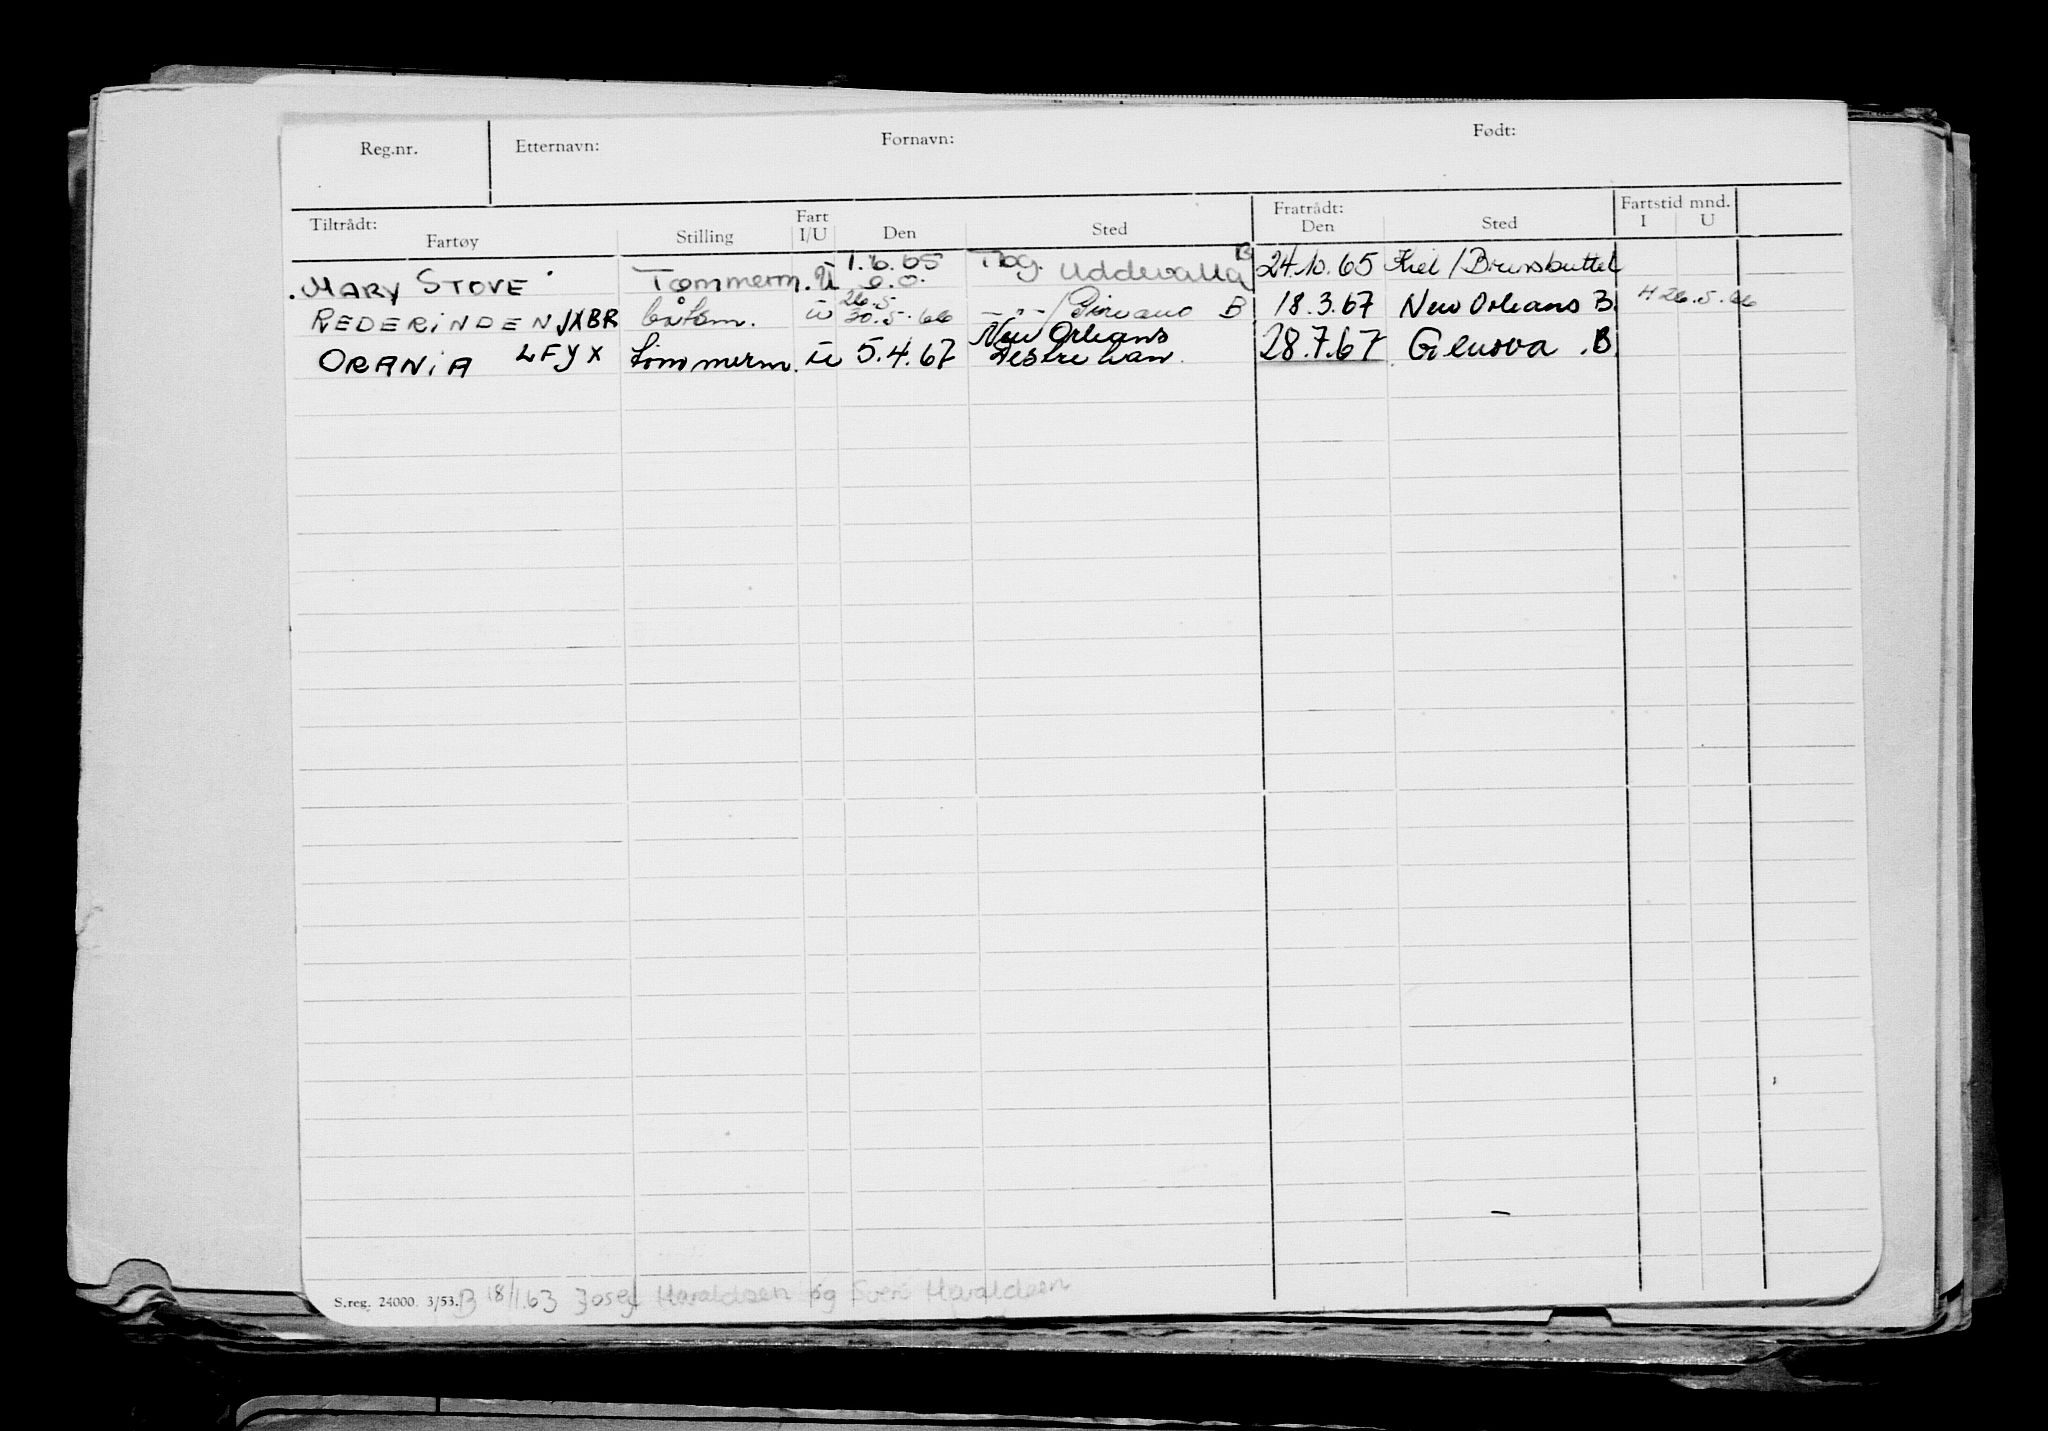 Reg.nr. Etternavn: Fornavn: Født:
Tiltrådt: Fartøy Stilling Fart I/U Den Sted Fratrådt: Den Sted Fartstid mnd. I U
MARY STOVE Tømmerm. U 1.6.65 Tbg. Uddevalla B 24.10.65 Kiel / Brunsbuttel
REDERINDEN JXBR båtsm. u 26.5 30.5.66 - " - / B 18.3.67 New Orleans B. H 26.5.66
ORANIA LFYX tømmerm. u 5.4.67 New Orleans Destrehan. 28.7.67 Genova .B.
S.reg. 24000. 3/53. B 18/1.63 Josef Haraldsen og Sven Haraldsen